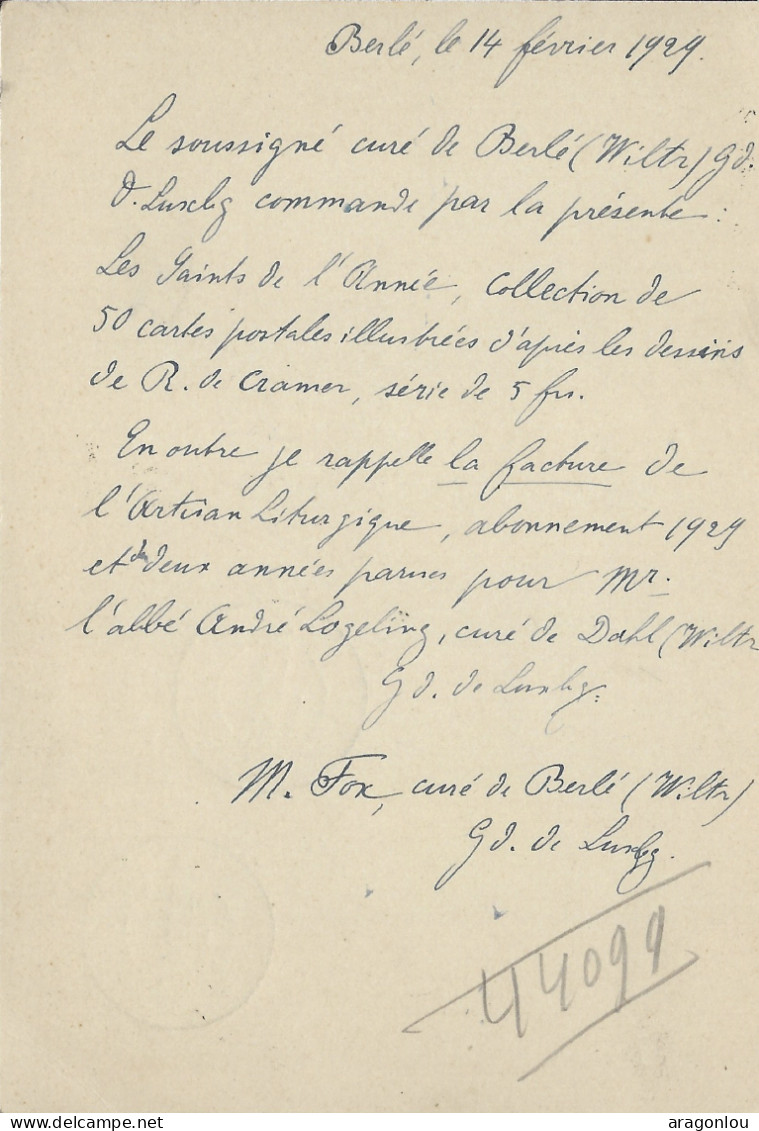 Berlé, le 14 février 1929.
Le soussigné curé de Berlé (Wiltz) Gd.
d. Luxbg commande par la présente :
Les Saints de l'Année, collection de
50 cartes postales illustrées d'après les dessins
de R. de Cramer, série de 5 frs.
En outre je rappelle la facture de
l'Artisan Liturgique, abonnement 1929
et deux années parues pour Mr.
l'abbé André Logeling, curé de Dahl (Wiltz
Gd. de Luxbg.
M. Fox, curé de Berlé (Wiltz)
Gd. de Luxbg.
44099
aragonlou